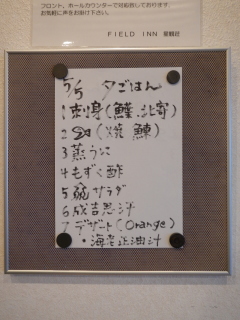 フロント、ホールカウンターで対応致しております。
お気軽に声をお掛け下さい。
FIELD INN 星観荘
5/5 夕ごはん
1 刺身(鰹.北寄)
2 (焼 鰊)
3 蒸うに
4 もずく酢
5 碗サラダ
6 成吉思汗
7 デザート(Orange)
・海老正油汁